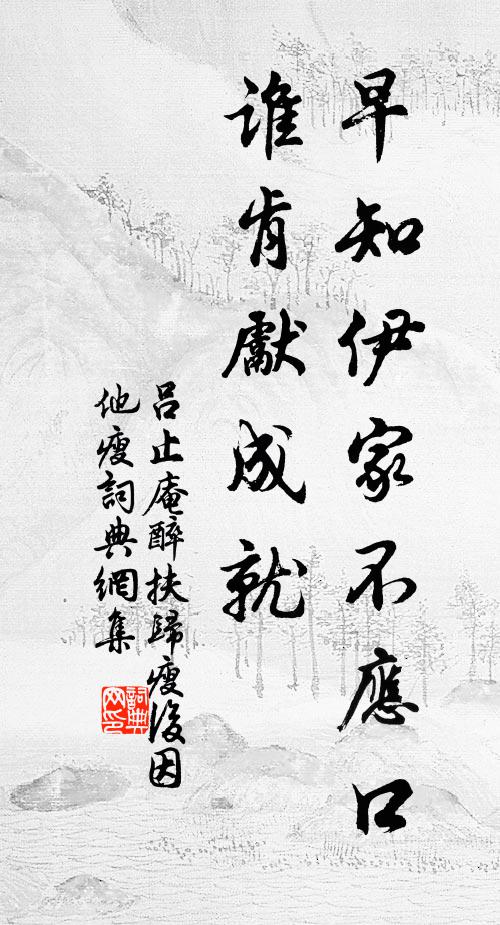 早知伊家不應口
誰肯獻成就
吕止庵醉扶歸瘦後因
他瘦詞典網集
詞典
网印